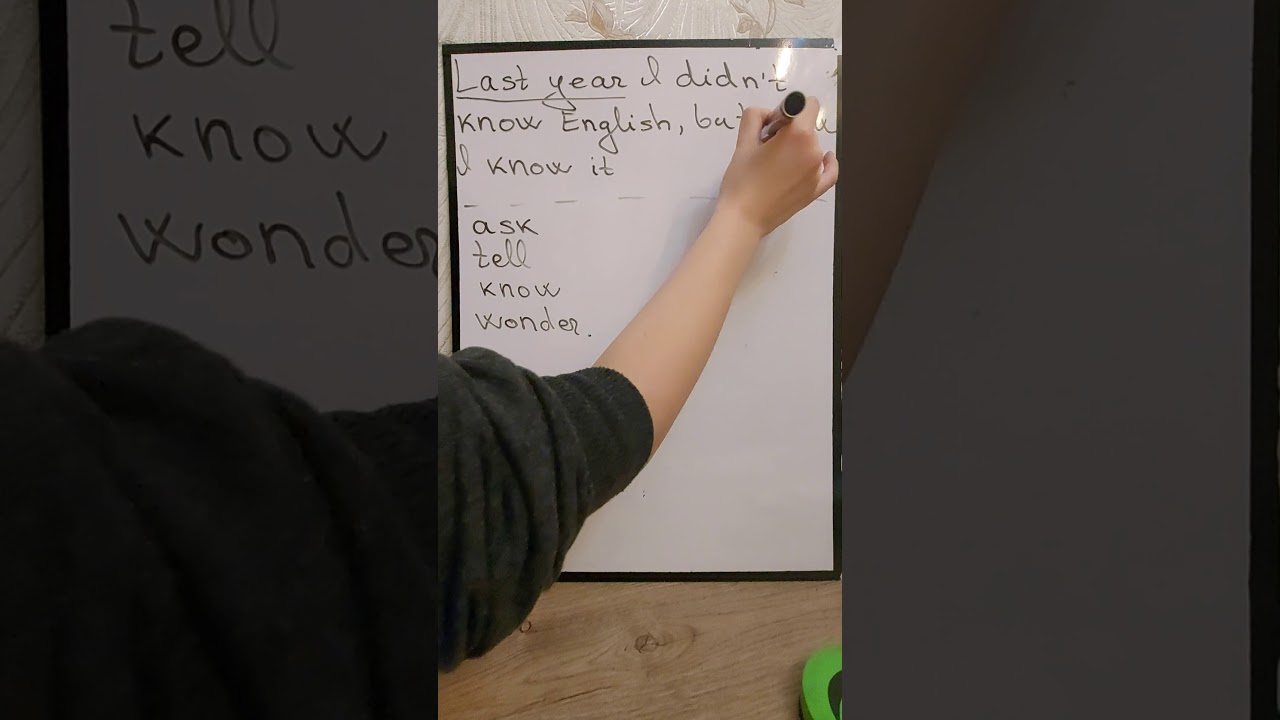 Last year I didn't
know English, but
I know it
ask
tell
know
wonder.